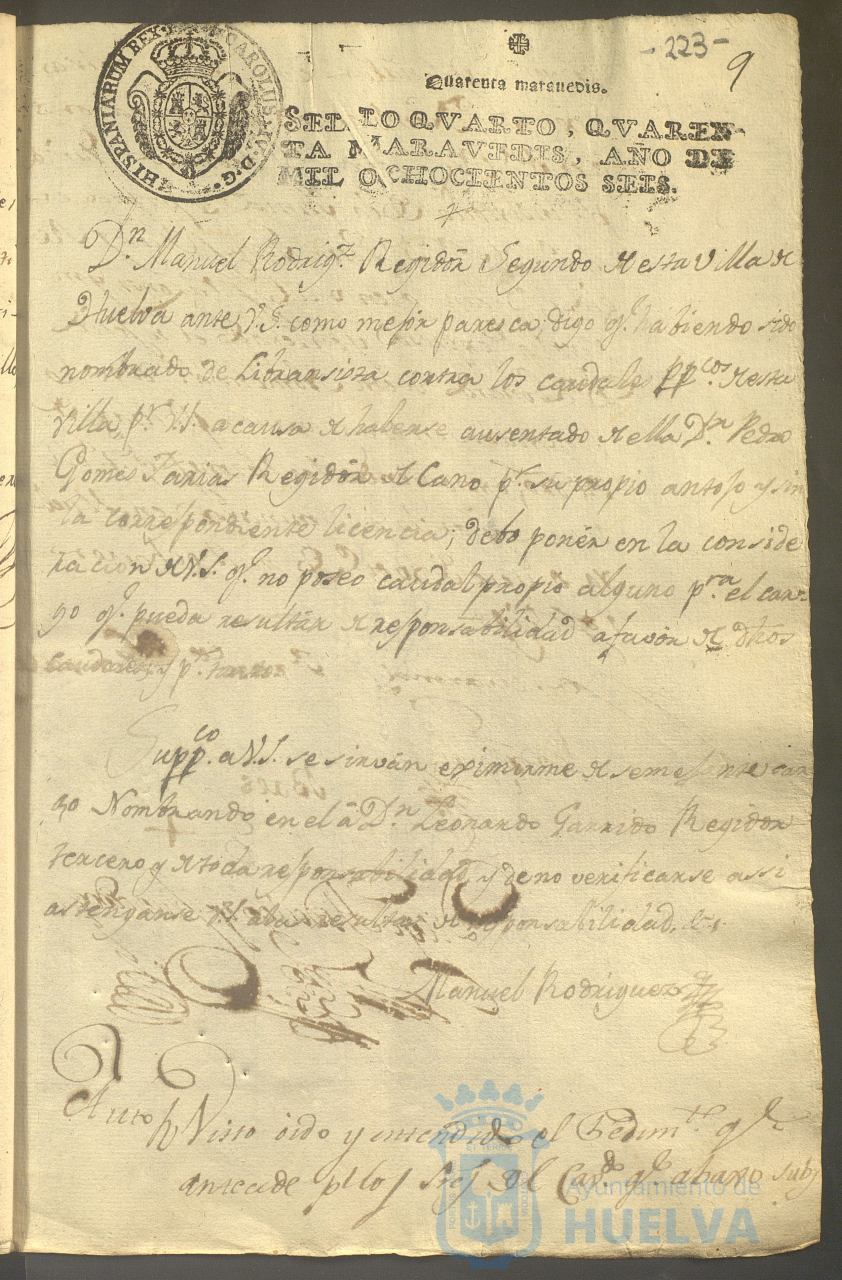 - 223 -
9
HISPANIARUM REX. CAROLUS IV. D. G.
Quarenta marauedis.
SELLO QVARTO, QVAREN-
TA MARAVEDIS, AÑO DE
MIL OCHOCIENTOS SEIS.
Dn. Manuel Rodrigz. Regidòr Segundo de esta Villa de
Huelva ante V.S. como mejór paresca, digo q.e habiendo sido
nombrado de Libransista contra los caudales ppcos. de esta
villa, pr. V.S. a causa de haberse ausentado de ella Dn. Pedro
Gomes Farias Regidòr de Cano pr. su propio antojo y sin
la correspondiente licencia; debo ponér en la conside
racion de V.S. q.e no poseo caudal propio alguno pra. el car-
go q.e pueda resultár de responsabilidad a favór de dhos
caudales, y pr. tanto
Suppco. a V.S. se sirvan eximirme de semejante car
go Nombrando en el à Dn. Leonardo Garrido Regidòr
tercero y de toda responsabilidad, y de no verificarse assi
atenganse V.S. a la resulta de responsabilidad, &a.
Manuel Rodriguez
Auto
Visto oido y entendido el Pedimto. q.e
antecede p.r los Sres. del Cavdo. q.e abaxo subs
Ayuntamiento de
HUELVA